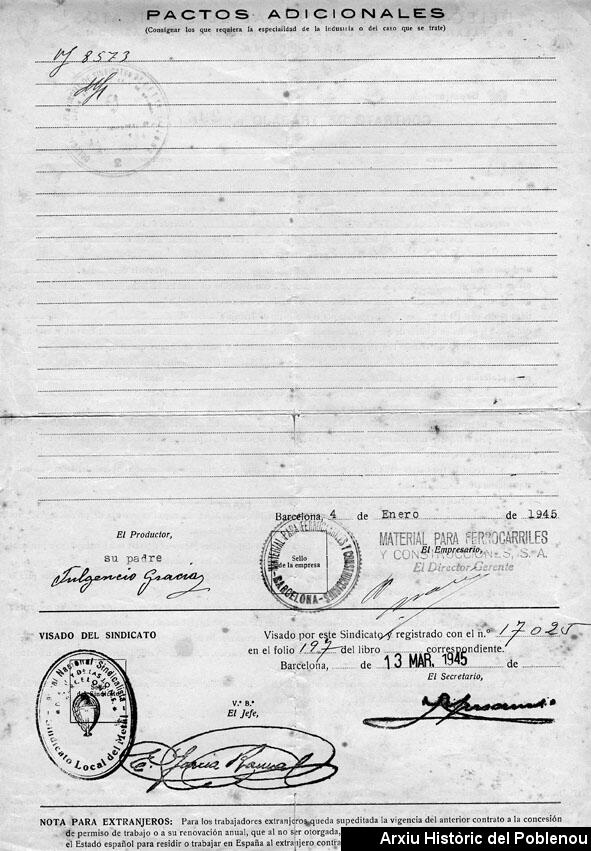 PACTOS ADICIONALES
(Consignar los que requiera la especialidad de la Industria o del caso que se trate)
8573
Barcelona, 4 de Enero de 1945
El Productor,
su padre
Fulgencio Gracia
MATERIAL PARA FERROCARRILES Y CONSTRUCCIONES
BARCELONA
Sello
de la empresa
MATERIAL PARA FERROCARRILES
Y CONSTRUCCIONES, S. A.
El Empresario,
El Director Gerente
VISADO DEL SINDICATO
Visado por este Sindicato y registrado con el n.º 17025
en el folio 197 del libro correspondiente.
Barcelona, de 13 MAR. 1945 de
El Secretario,
Nacional Sindicalista
Sello
del Sindicato
Sindicato Local del Metal
V.º B.º
El Jefe,
NOTA PARA EXTRANJEROS: Para los trabajadores extranjeros queda supeditada la vigencia del anterior contrato a la concesión
de permiso de trabajo o a su renovación anual, que al no ser otorgada,
el Estado español para residir o trabajar en España al extranjero
Arxiu Històric del Poblenou